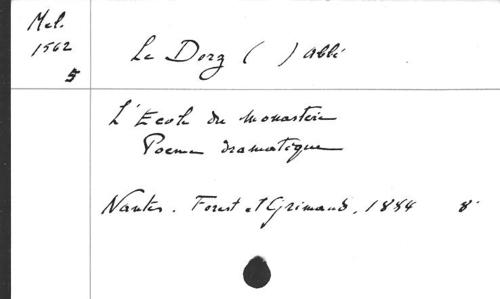 Mel.
1562
5
Le Dorz ( ) Abbé
L'Ecole du Monastère
Poeme dramatique
Nantes. Forest et Grimaud, 1884 8°